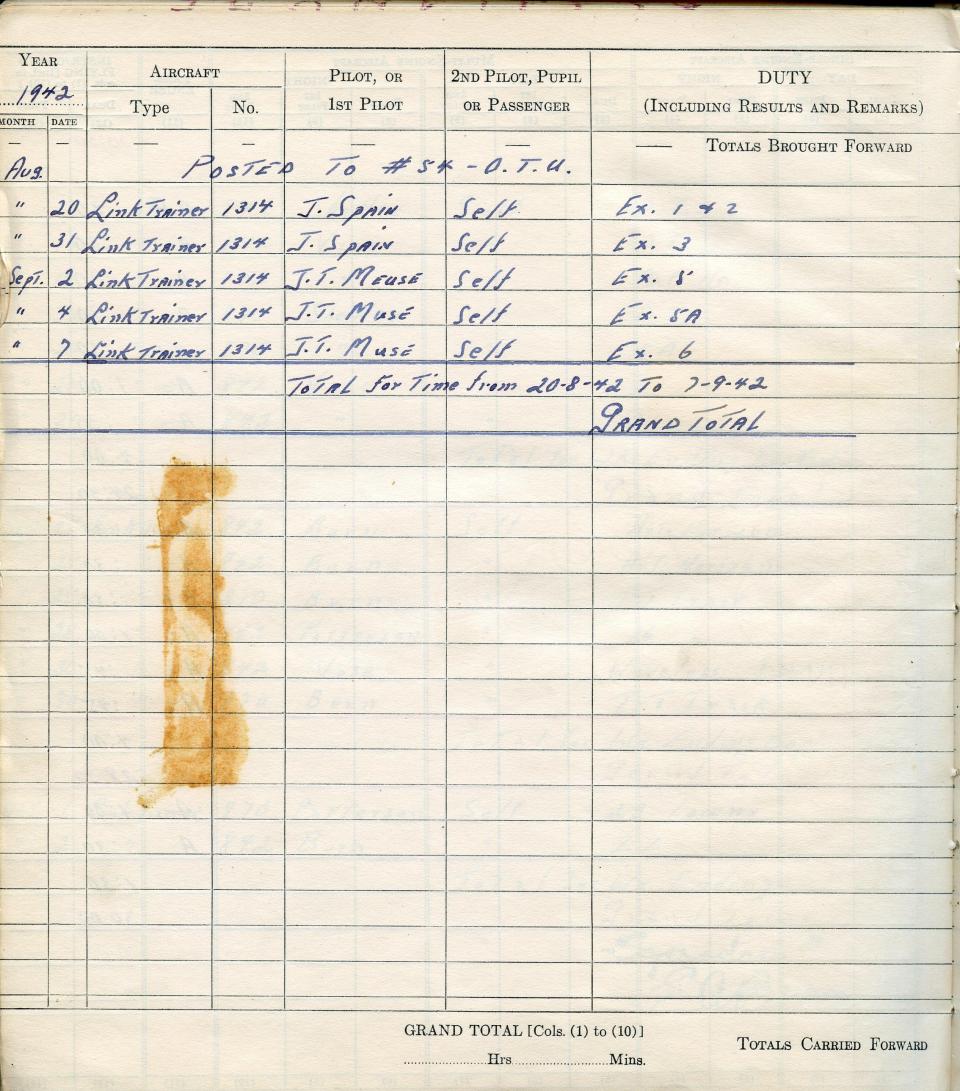 YEAR 1942 AIRCRAFT PILOT, OR 1ST PILOT 2ND PILOT, PUPIL OR PASSENGER DUTY (INCLUDING RESULTS AND REMARKS)
MONTH DATE Type No.
— — — — — — — TOTALS BROUGHT FORWARD
Aug. POSTED TO #54 - O.T.U.
" 20 Link Trainer 1314 J. SPAIN Self Ex. 1 & 2
" 31 Link Trainer 1314 J. SPAIN Self Ex. 3
Sept. 2 Link Trainer 1314 J.T. MEUSE Self Ex. 5
" 4 Link Trainer 1314 J.T. MUSE Self Ex. 5A
" 7 Link Trainer 1314 J.T. MUSE Self Ex. 6
TOTAL for Time from 20-8-42 TO 7-9-42
GRAND TOTAL
GRAND TOTAL [Cols. (1) to (10)]
............Hrs............Mins.
TOTALS CARRIED FORWARD